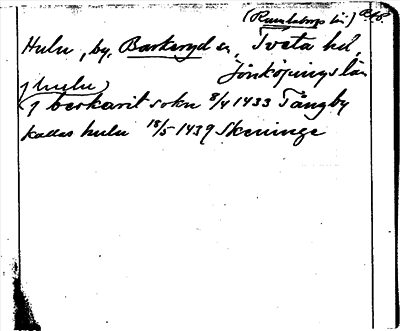 (Rumlaborgs län)
Hulu, by, Barkeryd sn, Tveta hd,
Jönköpings län
(hulu)
j berkarit sokn 8/4 1433 Tångby
kallas hulu 18/5 1439 Skeninge